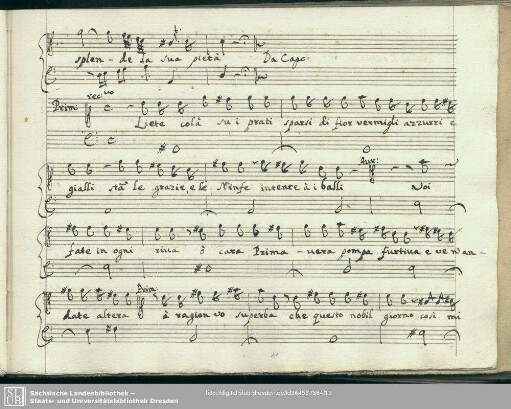 splen - de la sua pietà Da Capo
recvo
Prim
Liete colà su i prati sparsi di fior vermigli azzurri e
Aur:
gialli stà le grazie, e le Ninfe intente à i balli Voi
fate in ogni riva ò cara Prima - vera pompa furtiva e ve n'an -
date altera à ragion vo superba che questo nobil giorno così mi
Sächsische Landesbibliothek –
Staats- und Universitätsbibliothek Dresden